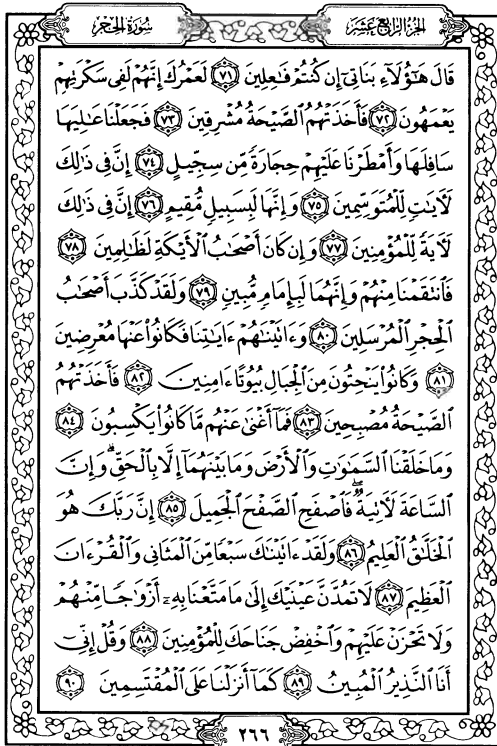 سورة الحجر
الجزء الرابع عشر
قَالَ هَٰٓؤُلَآءِ بَنَاتِىٓ إِن كُنتُمْ فَٰعِلِينَ ٧١ لَعَمْرُكَ إِنَّهُمْ لَفِى سَكْرَتِهِمْ
يَعْمَهُونَ ٧٢ فَأَخَذَتْهُمُ ٱلصَّيْحَةُ مُشْرِقِينَ ٧٣ فَجَعَلْنَا عَٰلِيَهَا
سَافِلَهَا وَأَمْطَرْنَا عَلَيْهِمْ حِجَارَةً مِّن سِجِّيلٍ ٧٤ إِنَّ فِى ذَٰلِكَ
لَءَايَٰتٍ لِّلْمُتَوَسِّمِينَ ٧٥ وَإِنَّهَا لَبِسَبِيلٍ مُّقِيمٍ ٧٦ إِنَّ فِى ذَٰلِكَ
لَءَايَةً لِّلْمُؤْمِنِينَ ٧٧ وَإِن كَانَ أَصْحَٰبُ ٱلْأَيْكَةِ لَظَٰلِمِينَ ٧٨
فَٱنتَقَمْنَا مِنْهُمْ وَإِنَّهُمَا لَبِإِمَامٍ مُّبِينٍ ٧٩ وَلَقَدْ كَذَّبَ أَصْحَٰبُ
ٱلْحِجْرِ ٱلْمُرْسَلِينَ ٨٠ وَءَاتَيْنَٰهُمْ ءَايَٰتِنَا فَكَانُوا۟ عَنْهَا مُعْرِضِينَ
٨١ وَكَانُوا۟ يَنْحِتُونَ مِنَ ٱلْجِبَالِ بُيُوتًا ءَامِنِينَ ٨٢ فَأَخَذَتْهُمُ
ٱلصَّيْحَةُ مُصْبِحِينَ ٨٣ فَمَآ أَغْنَىٰ عَنْهُم مَّا كَانُوا۟ يَكْسِبُونَ ٨٤
وَمَا خَلَقْنَا ٱلسَّمَٰوَٰتِ وَٱلْأَرْضَ وَمَا بَيْنَهُمَآ إِلَّا بِٱلْحَقِّ ۗ وَإِنَّ
ٱلسَّاعَةَ لَءَاتِيَةٌ ۖ فَٱصْفَحِ ٱلصَّفْحَ ٱلْجَمِيلَ ٨٥ إِنَّ رَبَّكَ هُوَ
ٱلْخَلَّٰقُ ٱلْعَلِيمُ ٨٦ وَلَقَدْ ءَاتَيْنَٰكَ سَبْعًا مِّنَ ٱلْمَثَانِى وَٱلْقُرْءَانَ
ٱلْعَظِيمَ ٨٧ لَا تَمُدَّنَّ عَيْنَيْكَ إِلَىٰ مَا مَتَّعْنَا بِهِۦٓ أَزْوَٰجًا مِّنْهُمْ
وَلَا تَحْزَنْ عَلَيْهِمْ وَٱخْفِضْ جَنَاحَكَ لِلْمُؤْمِنِينَ ٨٨ وَقُلْ إِنِّىٓ
أَنَا ٱلنَّذِيرُ ٱلْمُبِينُ ٨٩ كَمَآ أَنزَلْنَا عَلَى ٱلْمُقْتَسِمِينَ ٩٠
٢٦٦